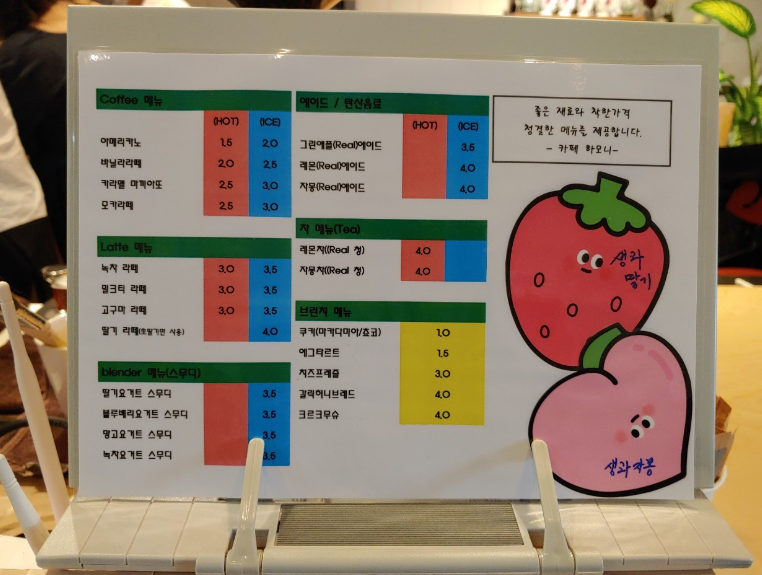 Coffee 메뉴
(HOT) (ICE)
아메리카노 1.5 2.0
바닐라라떼 2.0 2.5
카라멜 마끼아또 2.5 3.0
모카라떼 2.5 3.0
Latte 메뉴
녹차 라떼 3.0 3.5
밀크티 라떼 3.0 3.5
고구마 라떼 3.0 3.5
딸기 라떼(생딸기만 사용) 4.0
blender 메뉴(스무디)
딸기요거트 스무디 3.5
블루베리요거트 스무디 3.5
망고요거트 스무디 3.5
녹차요거트 스무디 3.5
에이드 / 탄산음료
(HOT) (ICE)
그린애플(Real)에이드 3.5
레몬(Real)에이드 4.0
자몽(Real)에이드 4.0
차 메뉴(Tea)
레몬차((Real 청) 4.0
자몽차((Real 청) 4.0
브런치 메뉴
쿠키(마카다미아/쵸코) 1.0
에그타르트 1.5
치즈프레즐 3.0
갈릭허니브레드 4.0
크로크무슈 4.0
좋은 재료와 착한가격
정결한 메뉴를 제공합니다.
- 카페 하모니-
생과
딸기
생과자몽